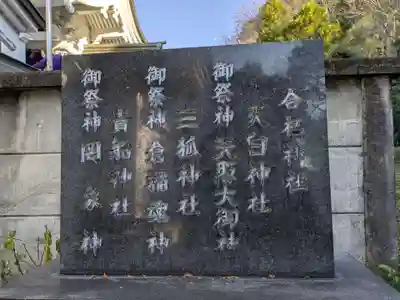 合祀神社
天白神社
御祭神 天照大御神
三狐神社
御祭神 倉稲魂神
貴船神社
御祭神 罔象神